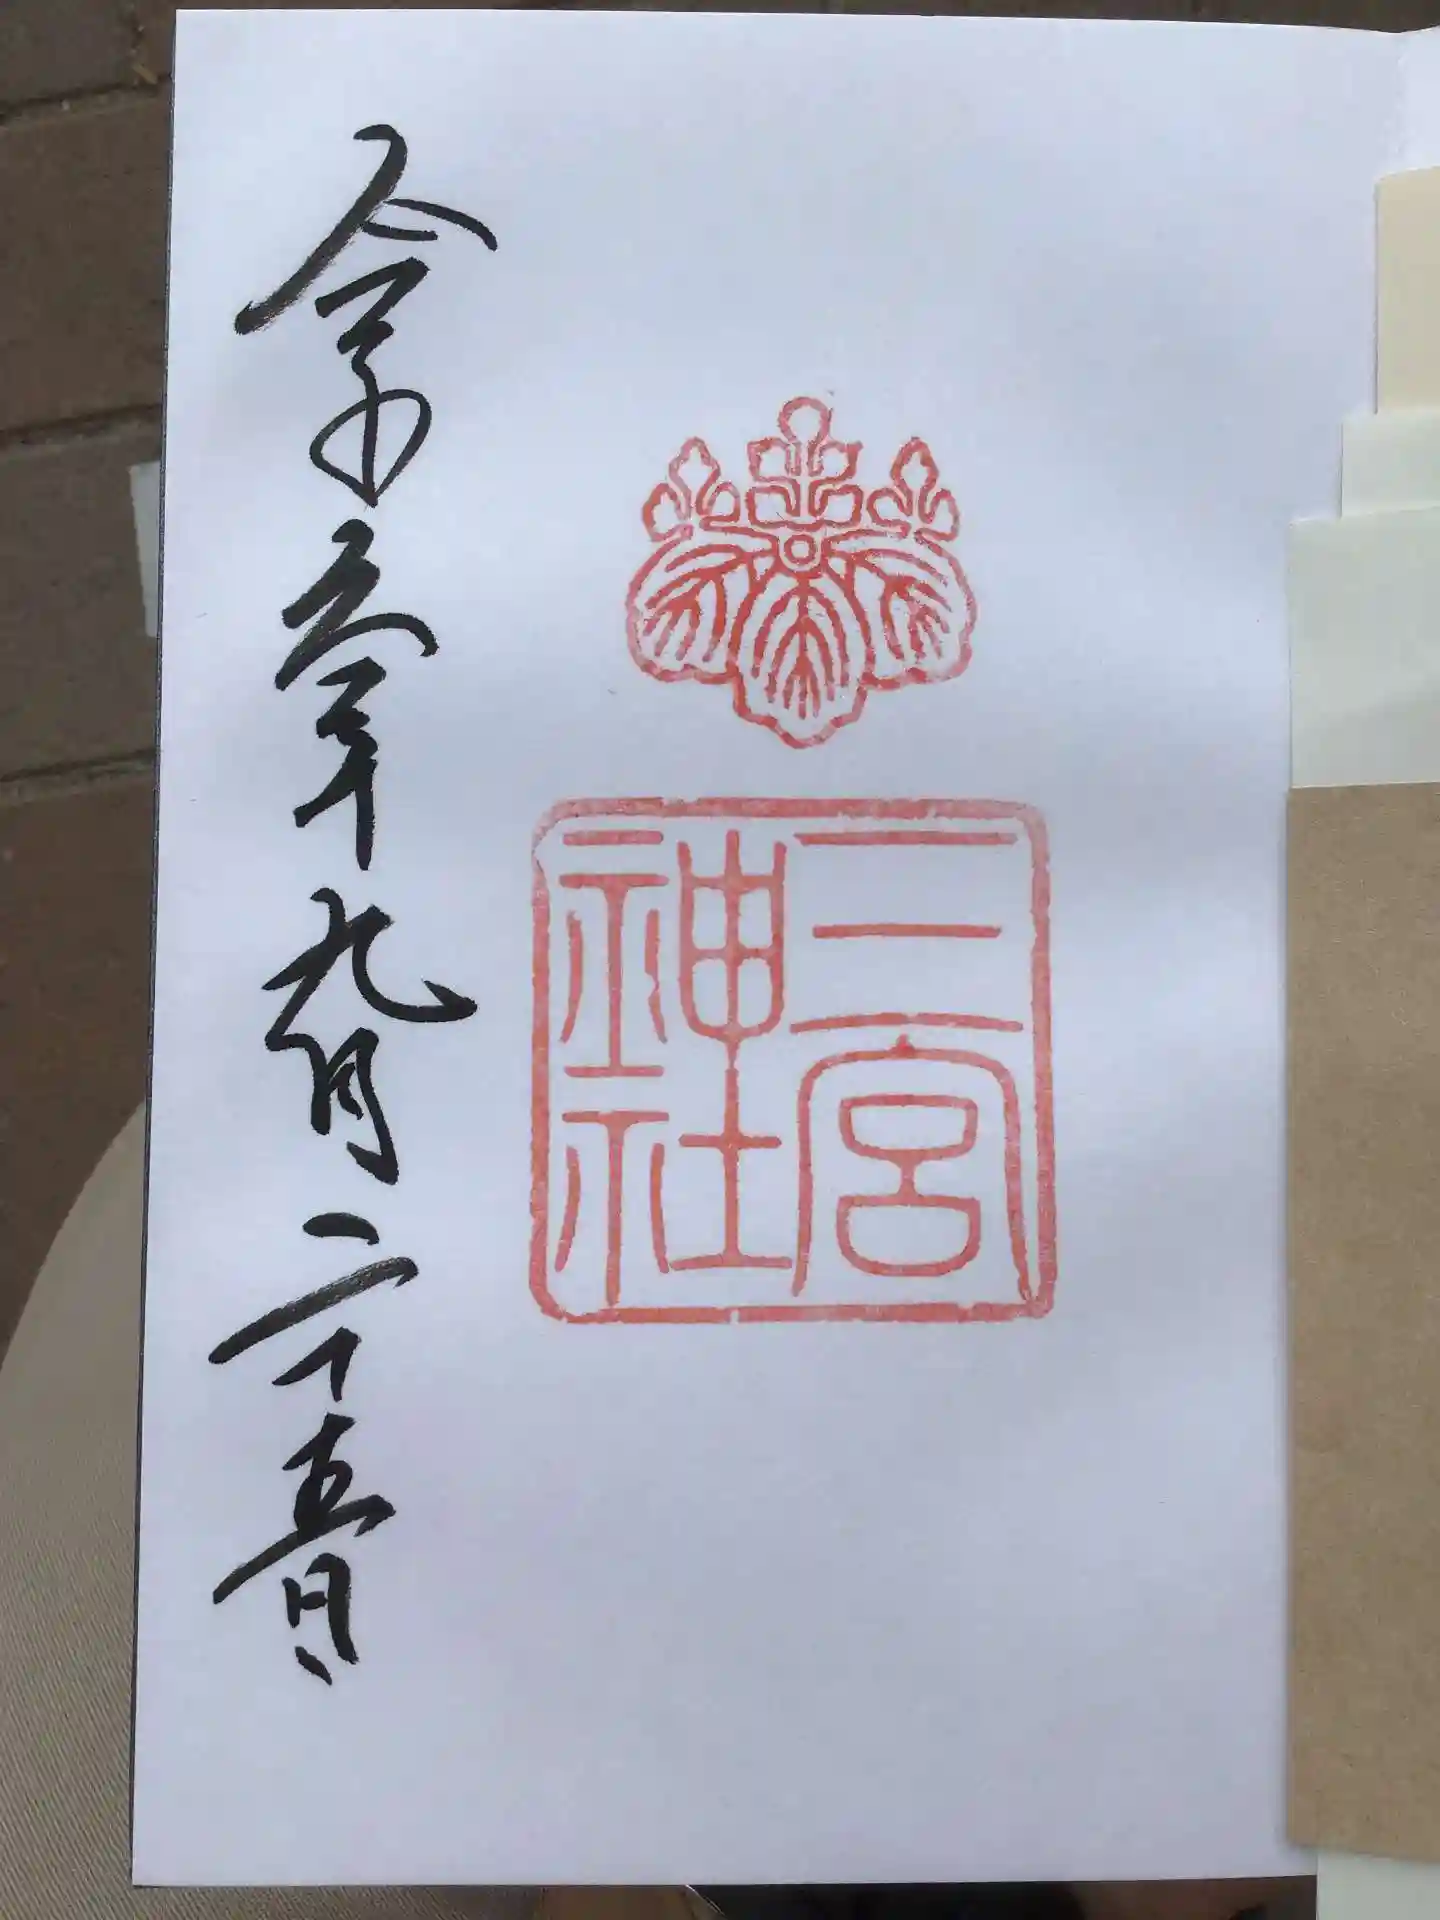 三宮
神社
令和六年九月二十五日